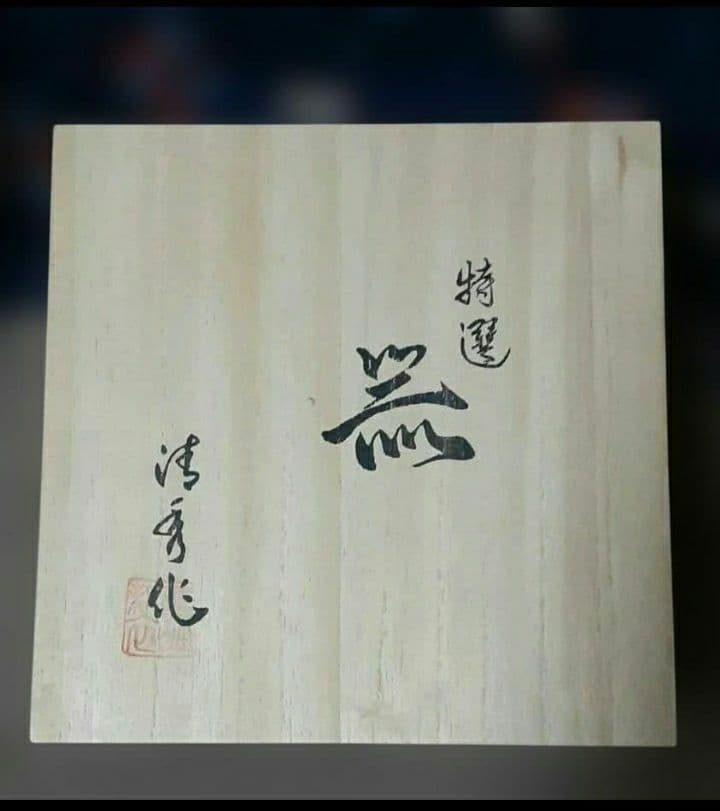 特選
器
清秀作